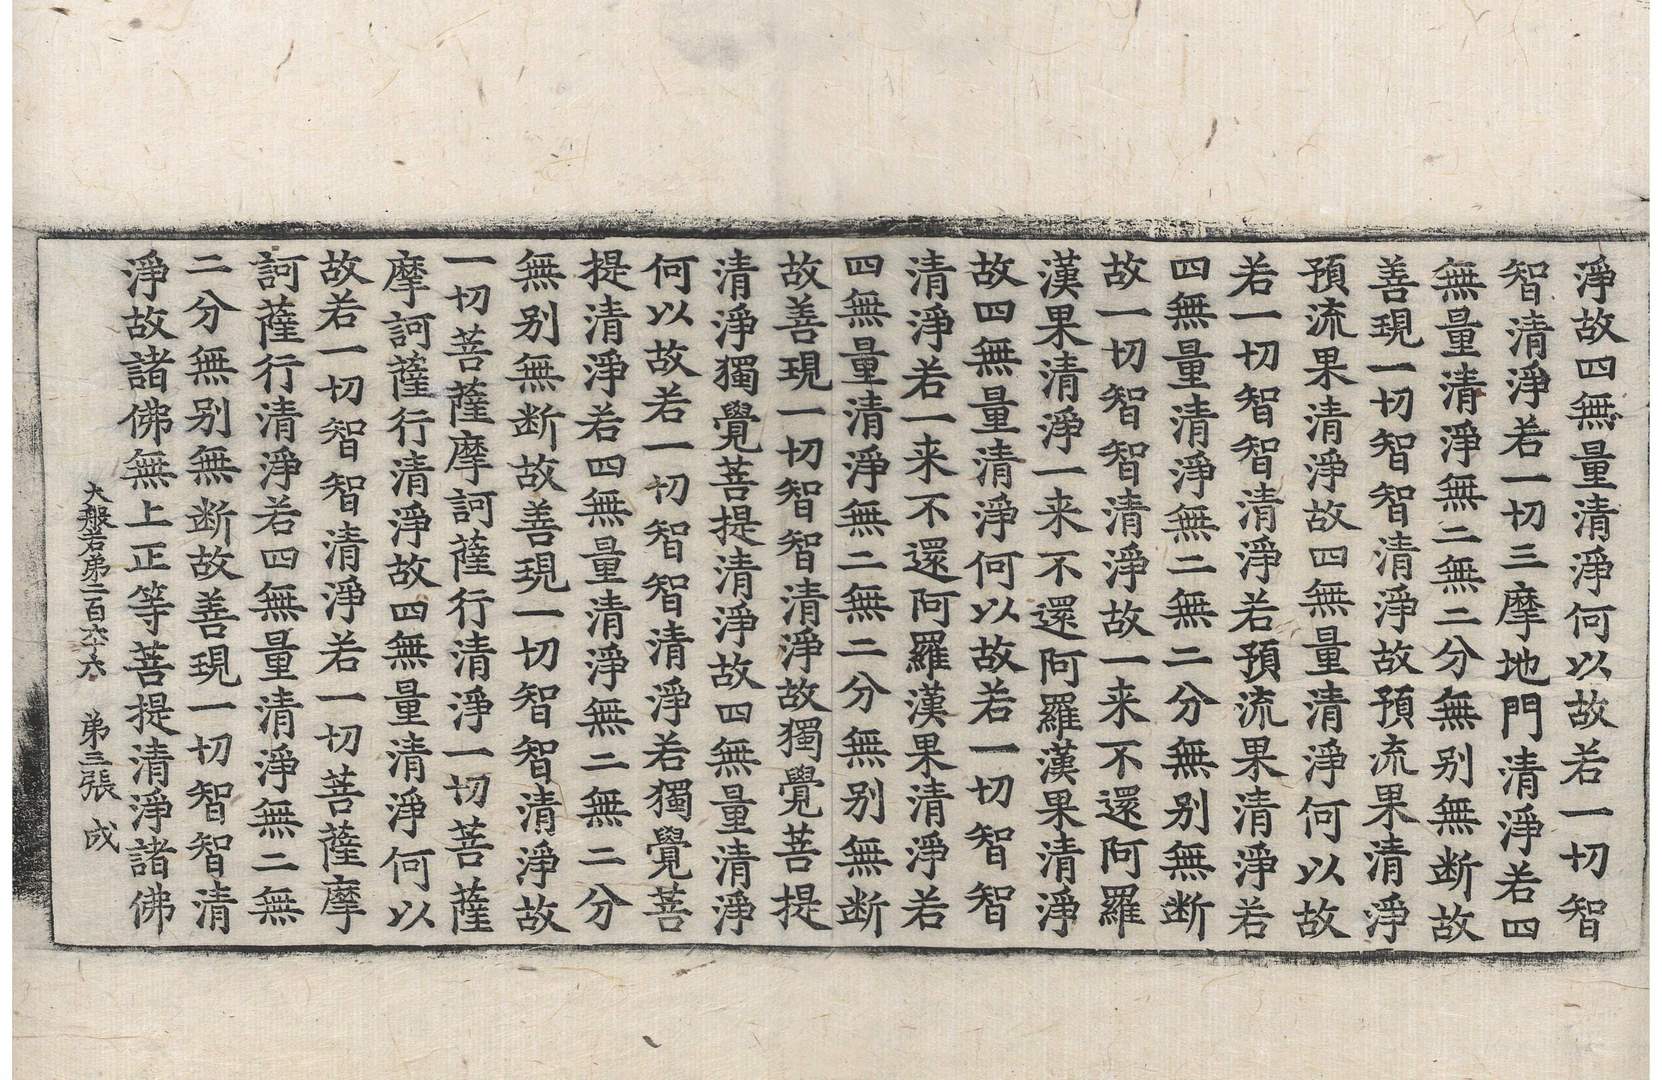 淨故四無量清淨何以故若一切智
智清淨若一切三摩地門清淨若四
無量清淨無二無二分無别無断故
善現一切智智清淨故預流果清淨
預流果清淨故四無量清淨何以故
若一切智智清淨若預流果清淨若
四無量清淨無二無二分無别無断
故一切智智清淨故一来不還阿羅
漢果清淨一来不還阿羅漢果清淨
故四無量清淨何以故若一切智智
清淨若一来不還阿羅漢果清淨若
四無量清淨無二無二分無别無断
故善現一切智智清淨故獨覺菩提
清淨獨覺菩提清淨故四無量清淨
何以故若一切智智清淨若獨覺菩
提清淨若四無量清淨無二無二分
無别無断故善現一切智智清淨故
一切菩薩摩訶薩行清淨一切菩薩
摩訶薩行清淨故四無量清淨何以
故若一切智智清淨若一切菩薩摩
訶薩行清淨若四無量清淨無二無
二分無别無断故善現一切智智清
淨故諸佛無上正等菩提清淨諸佛
大般若弟二百六十六 弟三張 成